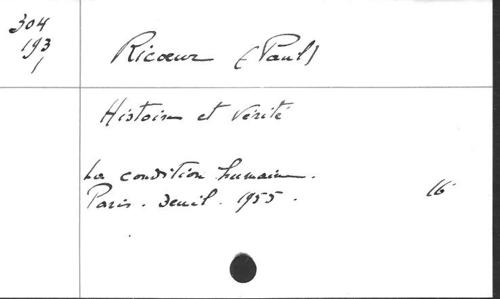 304
193
1
Ricœur (Paul)
Histoire et Vérité
La condition humaine.
Paris. Seuil. 1955.
16